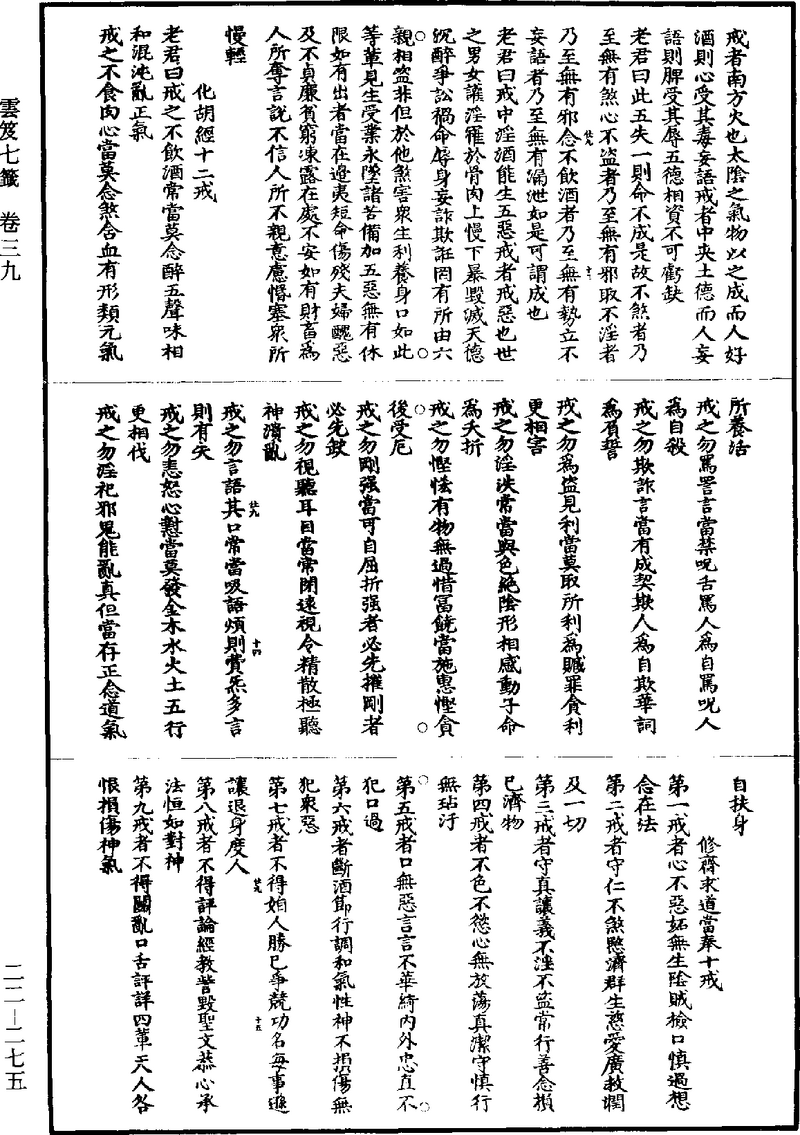 戒者南方火也太陰之氣物以之成而人好
酒則心受其毒妄語戒者中央土德而人妄
語則脾受其辱五德相資不可虧缺
老君曰此五失一則命不成是故不煞者乃
至無有煞心不盜者乃至無有邪取不淫者
乃至無有邪念不飲酒者乃至無有勢立不
妄語者乃至無有漏泄如是可謂成也
老君曰戒中淫酒能生五惡戒者戒惡也世
之男女讙淫罹於骨肉上慢下暴毀滅天德
沉醉爭訟禍命辱身妄詐欺誑罔有所由六
親相盜非但於他煞害衆生利養身口如此
等輩見生受業永墜諸苦備加五惡無有休
限如有出者當在邊夷短命傷殘夫婦醜惡
及不貞廉貧窮凍露在處不安如有財畜為
人所奪言說不信人所不親意慮惛塞衆所
慢輕
化胡經十二戒
老君曰戒之不飲酒常當莫念醉五聲味相
和混沌亂正氣
戒之不食肉心當莫念煞含血有形類元氣
所養活
戒之勿罵詈言當禁呪舌罵人為自罵呪人
為自殺
戒之勿欺詐言當有成契欺人為自欺華詞
為負誓
戒之勿為盜見利當莫取所利為贓罪貪利
更相害
戒之勿淫泆常當與色絕陰形相感動子命
為夭折
戒之勿慳恡有物無過惜富饒當施惠慳貪
後受厄
戒之勿剛强當可自屈折强者必先摧剛者
必先缺
戒之勿視聽耳目當常閉遠視令精散極聽
神潰亂
戒之勿言語其口常當吸語煩則費炁多言
則有失
戒之勿恚怒心懟當莫發金木水火土五行
更相伐
戒之勿淫祀邪鬼能亂真但當存正念道氣
自扶身
修齋求道當奉十戒
第一戒者心不惡妬無生陰賊檢口慎過想
念在法
第二戒者守仁不煞愍濟群生慈愛廣救潤
及一切
第三戒者守真讓義不淫不盜常行善念損
已濟物
第四戒者不色不慾心無放蕩真潔守慎行
無玷汙
第五戒者口無惡言言不華綺內外忠直不
犯口過
第六戒者斷酒節行調和氣性神不損傷無
犯衆惡
第七戒者不得姤人勝已爭競功名每事遜
讓退身度人
第八戒者不得評論經教訾毀聖文恭心承
法恒如對神
第九戒者不得鬭亂口舌評詳四輩天人各
恨損傷神氣
雲笈七籤 卷三九
二二—二七五